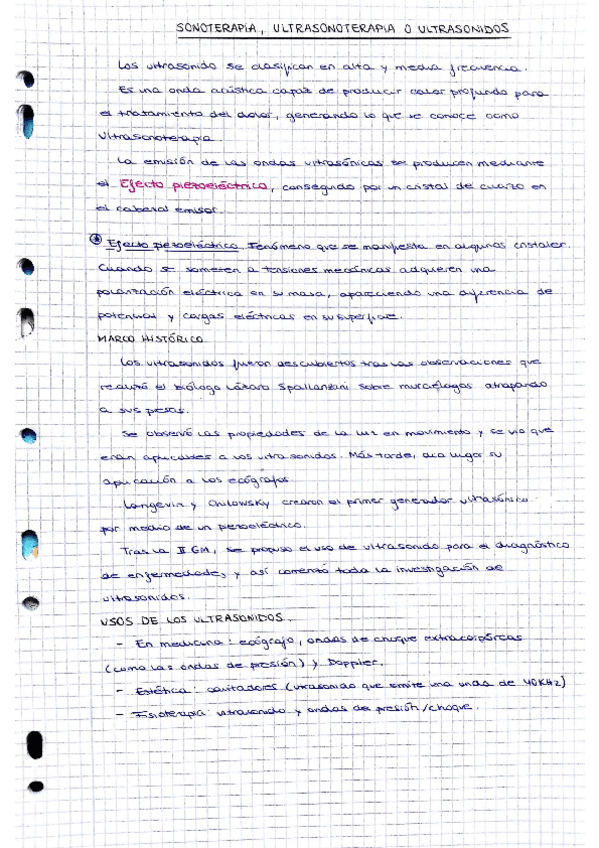 SONOTERAPIA, ULTRASONOTERAPIA O ULTRASONIDOS
Los ultrasonido se clasifican en alta y media frecuencia.
Es una onda acústica capaz de producir calor profundo para
el tratamiento del dolor, generando lo que se conoce como
ultrasonoterapia.
La emisión de las ondas ultrasónicas se producen mediante
el Efecto piezoeléctrico, conseguido por un cristal de cuarzo en
el cabezal emisor.
* Efecto piezoeléctrico. Fenómeno que se manifiesta en algunos cristales.
Cuando se someten a tensiones mecánicas adquieren una
polarización eléctrica en su masa, apareciendo una diferencia de
potencial y cargas eléctricas en su superficie.
MARCO HISTÓRICO
Los ultrasonidos fueron descubiertos tras las observaciones que
realizó el biólogo Lázaro Spallanzani sobre murciélagos atrapando
a sus presas.
Se observó las propiedades de la luz en movimiento y se vio que
eran aplicables a los ultrasonidos. Más tarde, dio lugar su
aplicación a los ecógrafos.
Langevin y Chilowsky crearon el primer generador ultrasónico
por medio de un piezoeléctrico.
Tras la II GM, se propuso el uso de ultrasonido para el diagnóstico
de enfermedades y así comenzó toda la investigación de
ultrasonidos.
USOS DE LOS ULTRASONIDOS.
- En medicina: ecógrafo, ondas de choque extracorpóreas
(como las ondas de presión) y Doppler.
- Estética: cavitadores (ultrasonido que emite una onda de 40KHz)
- Fisioterapia: ultrasonido y ondas de presión/choque.